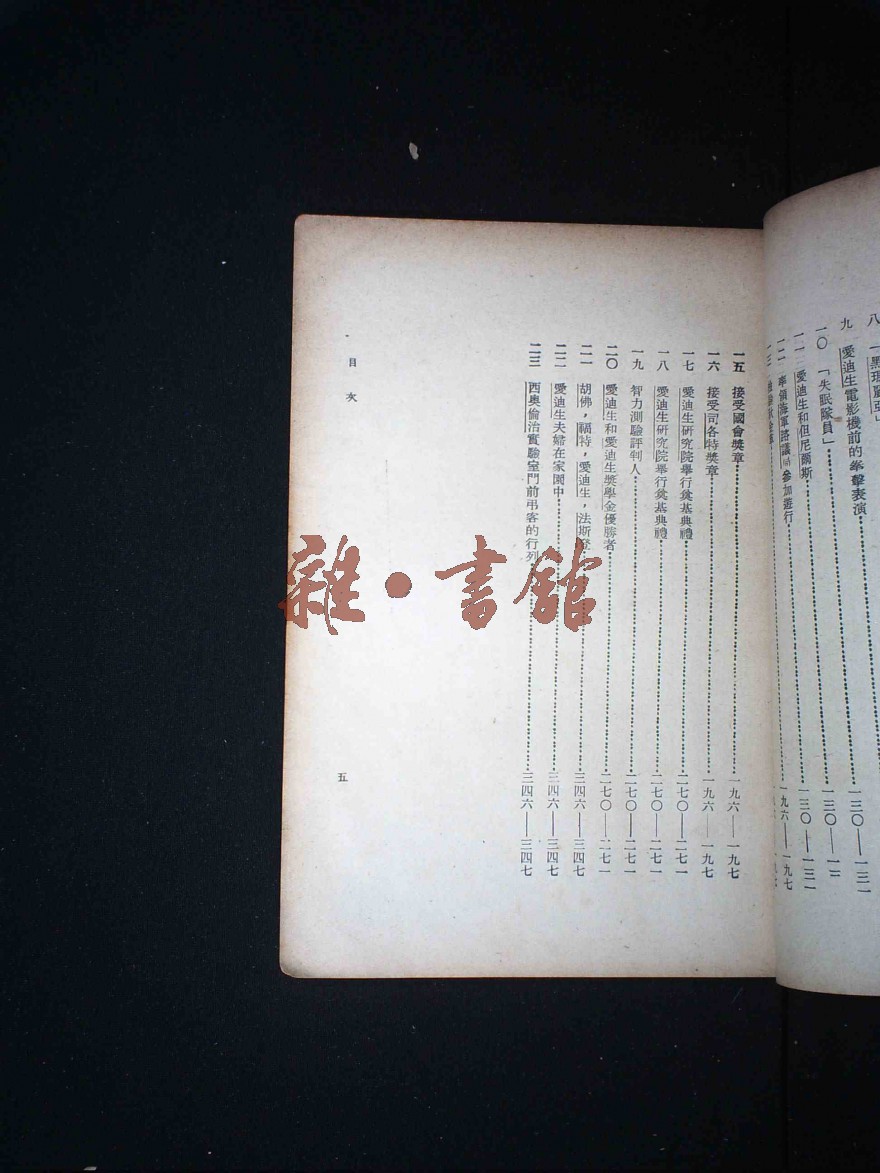 八 「黑瑪麗亞」
九 愛迪生電影機前的拳擊表演 一三〇——一三一
一〇 「失眠隊員」 一三〇——一三
一一 愛迪生和但尼爾斯 一三〇——一三一
一二 率領海軍諮議局參加遊行 一九六——一九七
一五 接受國會獎章 一九六——一九七
一六 接受司各特獎章 一九六——一九七
一七 愛迪生研究院舉行奠基典禮 二七〇——二七一
一八 愛迪生研究院舉行奠基典禮 二七〇——二七一
一九 智力測驗評判人 二七〇——二七一
二〇 愛迪生和愛迪生獎學金優勝者 二七〇——二七一
二一 胡佛，福特，愛迪生，法斯 三四六——三四七
二二 愛迪生夫婦在家園中 三四六——三四七
二三 西奧倫治實驗室門前弔客的行列 三四六——三四七
目次
五
雜·書館